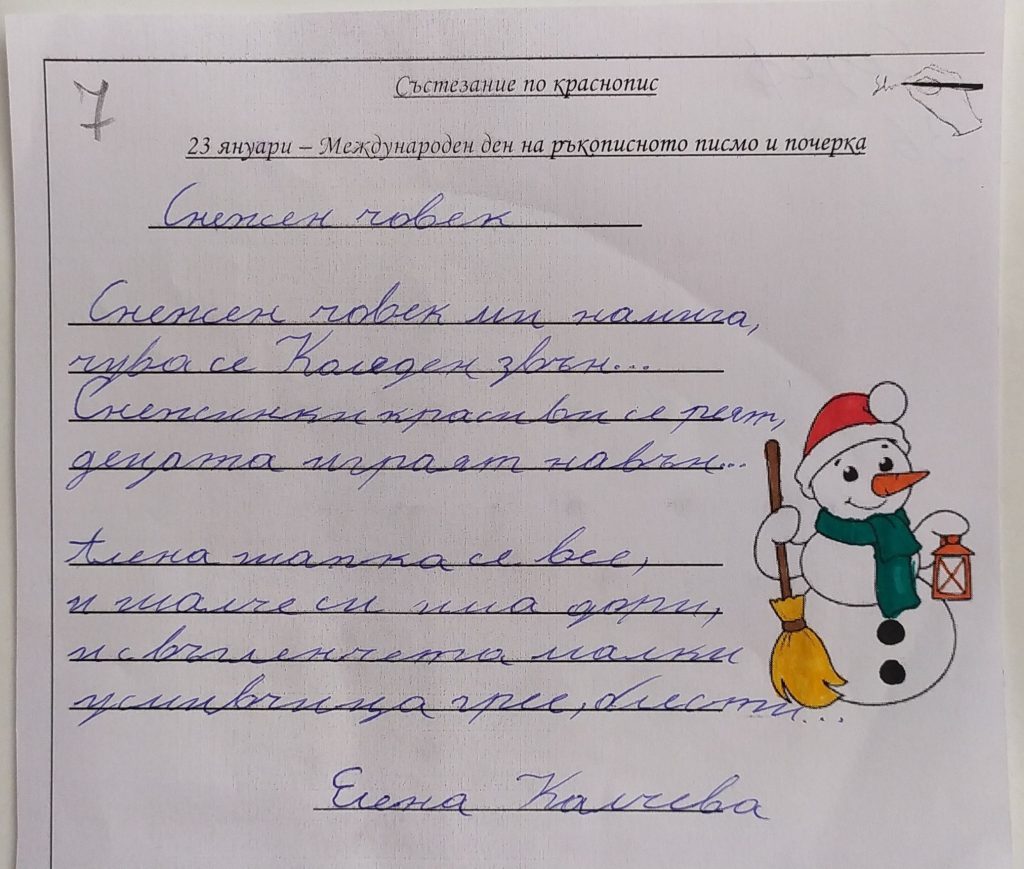 7
Състезание по краснопис
23 януари – Международен ден на ръкописното писмо и почерка
Снежен човек
Снежен човек ми намига,
чува се Коледен звън...
Снежинки красиви се реят,
децата играят навън...
Алена шапка се вее,
и шалче си има дори,
и с въгленчета малки
усмивчица грее, блести...
Елена Калчева